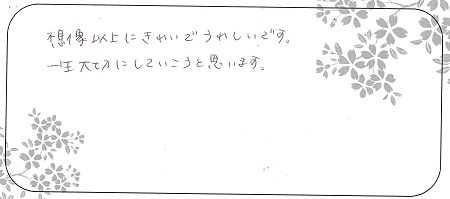 想像以上にきれいでうれしいです。
一生大切にしていこうと思います。